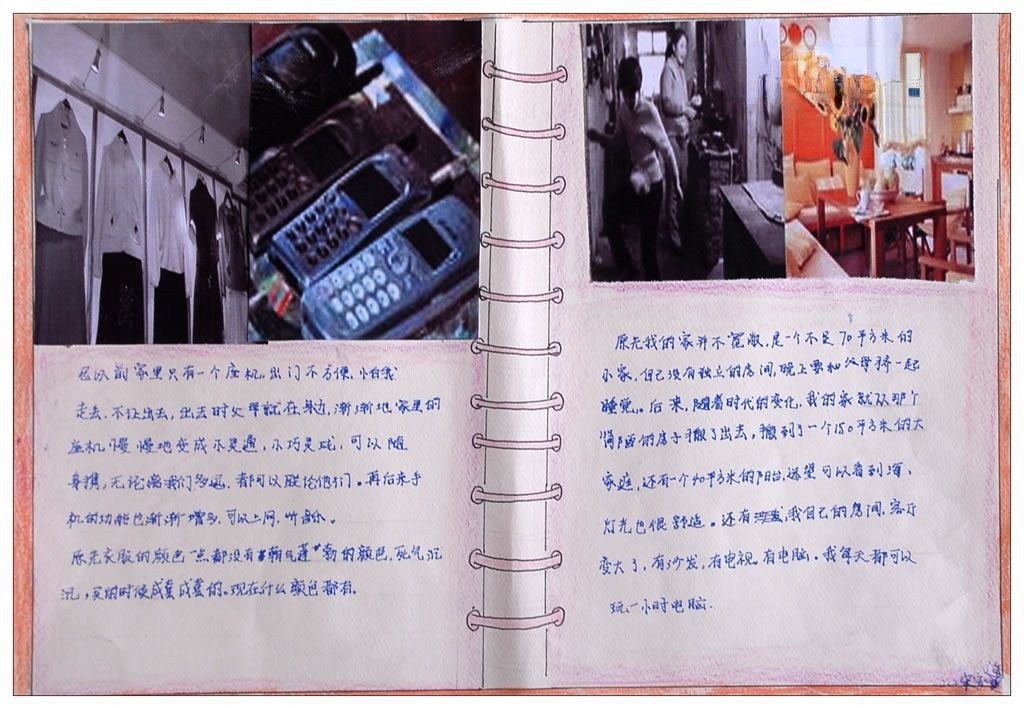 以前家里只有一个座机，出门不方便，怕我
走丢，不让出去，出去时父母就在身边，渐渐地家里的
座机，慢慢地变成小灵通，小巧灵珑，可以随
身携，无论离我们多远，都可以联络他们。再后来手
机的功能也渐渐增多，可以上网，听音乐。
原先衣服的颜色一点都没有朝气蓬勃的颜色，死气沉
沉，买的时候成套成套的。现在什么颜色都有。
原先我的家并不宽敞，是一个不足70平方米的
小家，自己没有独立的房间，晚上要和父母挤一起
睡觉。后来，随着时代的变化，我的家就从那个
简陋的房子搬了出去，搬到了一个150平方米的大
家庭，还有一个40平方米的阳台，远望可以看到海，
灯光也很舒适。还有我自己的房间，客厅
变大了，有沙发，有电视，有电脑。我每天都可以
玩一小时电脑.